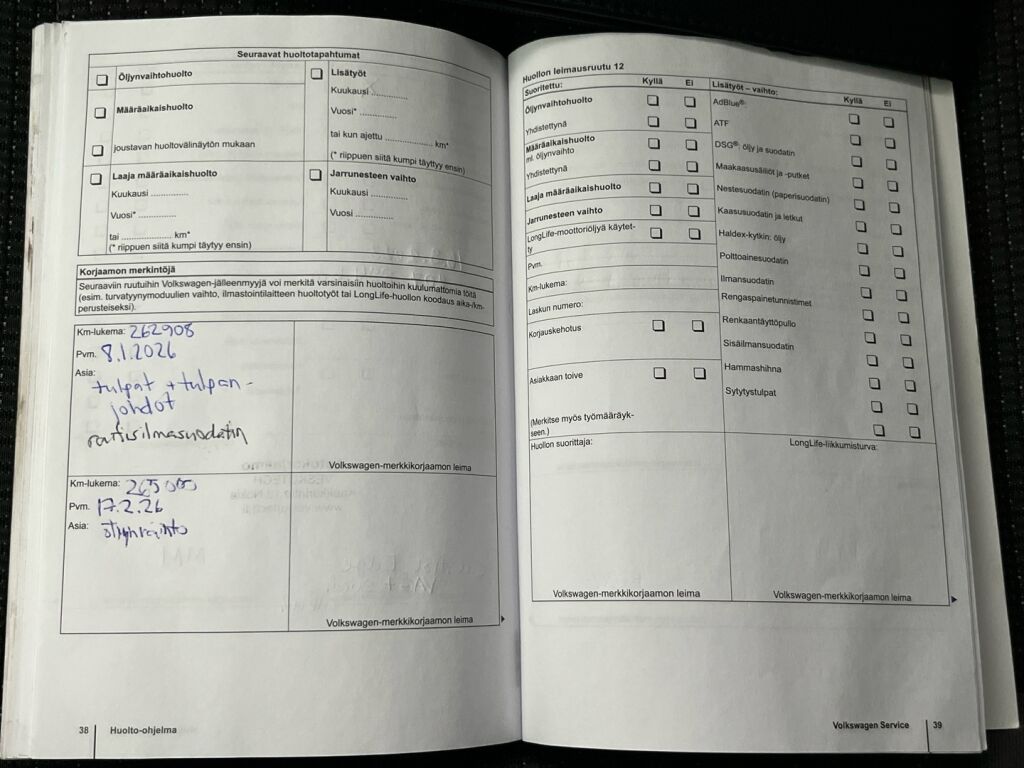 Seuraavat huoltotapahtumat
Öljynvaihtohuolto
Määräaikaishuolto
joustavan huoltovälinäytön mukaan
Lisätyöt
Kuukausi ..............
Vuosi* ..............
tai kun ajettu .................. km*
(* riippuen siitä kumpi täyttyy ensin)
Laaja määräaikaishuolto
Kuukausi ..............
Vuosi* ..............
tai ................... km*
(* riippuen siitä kumpi täytyy ensin)
Jarrunesteen vaihto
Kuukausi ..............
Vuosi ..............
Korjaamon merkintöjä
Seuraaviin ruutuihin Volkswagen-jälleenmyyjä voi merkitä varsinaisiin huoltoihin kuulumattomia töitä
(esim. turvatyynymoduulien vaihto, ilmastointilaitteen huoltotyöt tai LongLife-huollon koodaus aika-/km-
perusteiseksi).
Km-lukema: 262908
Pvm. 8.1.2026
Asia:
tulpat + tulpan-
johdot
raitisilmasuodatin
Volkswagen-merkkikorjaamon leima
Km-lukema: 265000
Pvm. 17.2.26
Asia: öljynvaihto
Volkswagen-merkkikorjaamon leima
38 Huolto-ohjelma
Huollon leimausruutu 12
Suoritettu: Kyllä Ei
Öljynvaihtohuolto
Yhdistettynä
Määräaikaishuolto
ml. öljynvaihto
Yhdistettynä
Laaja määräaikaishuolto
Jarrunesteen vaihto
LongLife-moottoriöljyä käytet-
ty
Pvm.
Km-lukema:
Laskun numero:
Korjauskehotus
Asiakkaan toive
(Merkitse myös työmääräyk-
seen.)
Lisätyöt – vaihto: Kyllä Ei
AdBlue®:
ATF
DSG®: öljy ja suodatin
Maakaasusäiliöt ja -putket
Nestesuodatin (paperisuodatin)
Kaasusuodatin ja letkut
Haldex-kytkin: öljy
Polttoainesuodatin
Ilmansuodatin
Rengaspainetunnistimet
Renkaantäyttöpullo
Sisäilmansuodatin
Hammashihna
Sytytystulpat
Huollon suorittaja:
LongLife-liikkumisturva:
Volkswagen-merkkikorjaamon leima
Volkswagen-merkkikorjaamon leima
Volkswagen Service 39